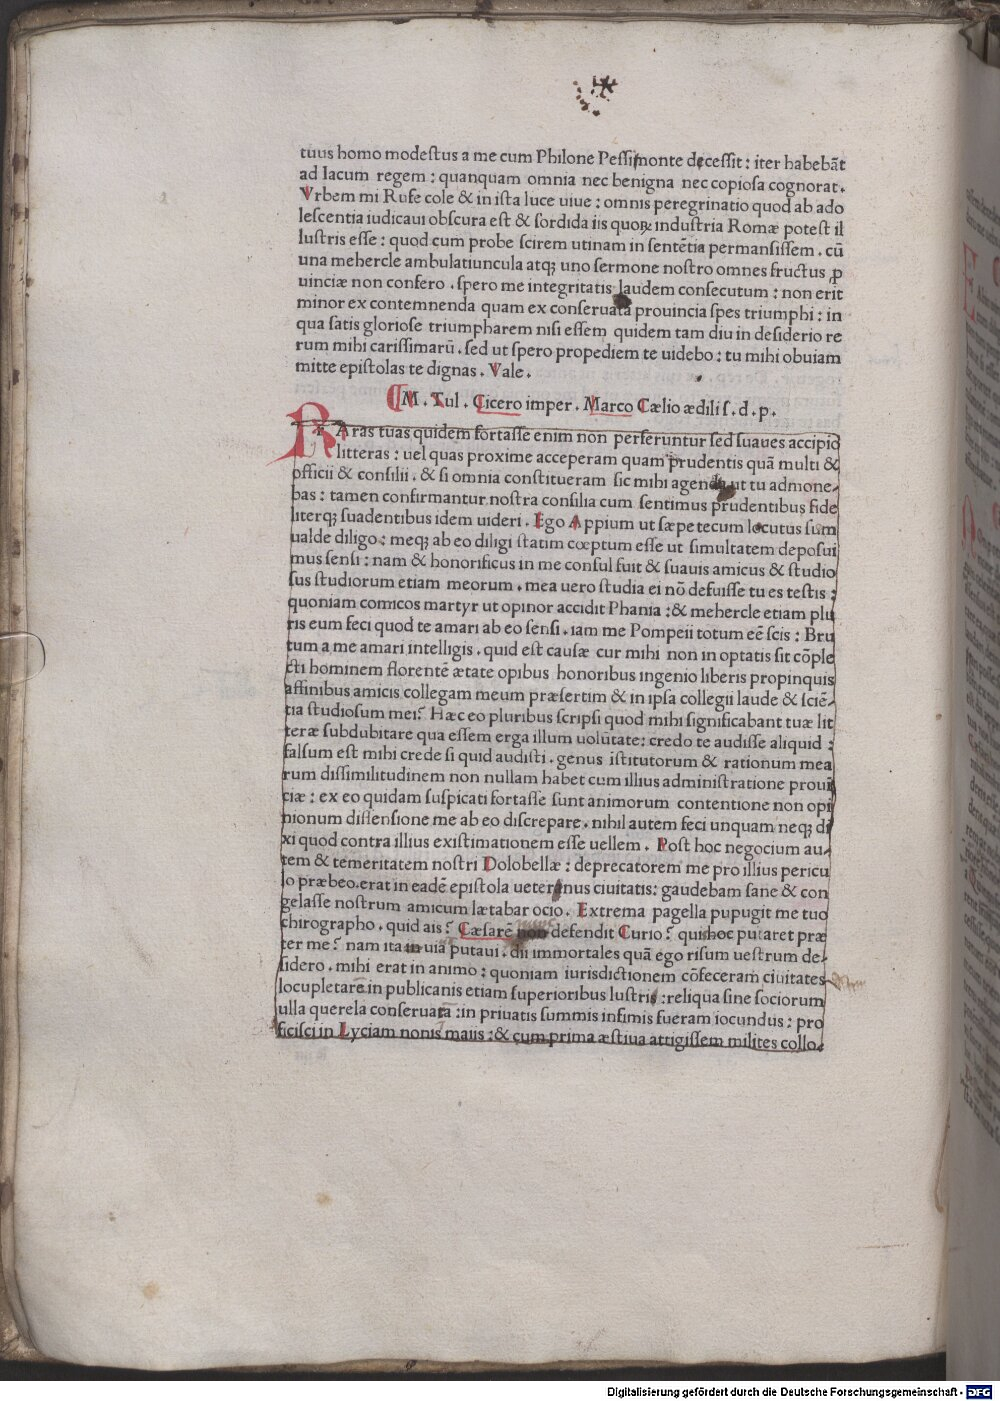 tuus homo modeſtus a me cum Philone Peſſimonte deceſſit : iter habebāt
ad Iacum regem : quanquam omnia nec benigna nec copioſa cognorat.
Vrbem mi Rufe cole & in iſta luce uiue : omnis peregrinatio quod ab ado
leſcentia iudicaui obſcura eſt & ſordida iis quoꝝ induſtria Romæ poteſt il
luſtris eſſe : quod cum probe ſcirem utinam in ſentētia permanſiſſem . cū
una mehercle ambulatiuncula atqꝫ uno ſermone noſtro omnes fructus ꝓ
uinciæ non confero . ſpero me integritatis laudem conſecutum : non erit
minor ex contemnenda quam ex conſeruata prouincia ſpes triumphi : in
qua ſatis glorioſe triumpharem niſi eſſem quidem tam diu in deſiderio re
rum mihi cariſſimarū . ſed ut ſpero propediem te uidebo : tu mihi obuiam
mitte epiſtolas te dignas . Vale .
M . Tul . Cicero imper . Marco Cælio ædili ſ . d . p .
RAras tuas quidem fortaſſe enim non perferuntur ſed ſuaues accipio
litteras : uel quas proxime acceperam quam prudentis quā multi &
officii & conſilii . & ſi omnia conſtitueram ſic mihi agenda ut tu admone
bas : tamen confirmantur noſtra conſilia cum ſentimus prudentibus fide
literqꝫ ſuadentibus idem uideri . Ego Appium ut ſæpe tecum locutus ſum
ualde diligo : meqꝫ ab eo diligi ſtatim cœptum eſſe ut ſimultatem depoſui
mus ſenſi : nam & honorificus in me conſul fuit & ſuauis amicus & ſtudio
ſus ſtudiorum etiam meorum . mea uero ſtudia ei nō defuiſſe tu es teſtis :
quoniam comicos martyr ut opinor accidit Phania : & mehercle etiam plu
ris eum feci quod te amari ab eo ſenſi . iam me Pompeii totum eē ſcis : Bru
tum a me amari intelligis . quid eſt cauſæ cur mihi non in optatis ſit cōple
cti hominem florentē ætate opibus honoribus ingenio liberis propinquis
affinibus amicis collegam meum præſertim & in ipſa collegii laude & ſciē-
tia ſtudioſum mei? Hæc eo pluribus ſcripſi quod mihi ſignificabant tuæ lit
teræ ſubdubitare qua eſſem erga illum uolūtate: credo te audiſſe aliquid :
falſum eſt mihi crede ſi quid audiſti . genus iſtitutorum & rationum mea
rum diſſimilitudinem non nullam habet cum illius adminiſtratione prouī
ciæ : ex eo quidam ſuſpicati fortaſſe ſunt animorum contentione non opi
nionum diſſenſione me ab eo diſcrepare . nihil autem feci unquam neqꝫ di
xi quod contra illius exiſtimationem eſſe uellem . Poſt hoc negocium au-
tem & temeritatem noſtri Dolobellæ : deprecatorem me pro illius pericu
lo præbeo. erat in eadē epiſtola ueternus ciuitatis: gaudebam ſane & con
gelaſſe noſtrum amicum lætabar ocio. Extrema pagella pupugit me tuo
chirographo . quid ais? Cæſarē non defendit Curio? quis hoc putaret præ
ter me? nam ita uiā putaui . dii immortales quā ego riſum ueſtrum de-
ſidero . mihi erat in animo : quoniam iurisdictionem cōfeceram ciuitates
locupletarē in publicanis etiam ſuperioribus luſtris : reliqua ſine ſociorum
ulla querela conſeruatā : in priuatis ſummis infimis fueram iocundus : pro
ficiſci in Lyciam nonis maiis : & cum prima æſtiua attigiſſem milites collo.
Digitalisierung gefördert durch die Deutsche Forschungsgemeinschaft - DFG